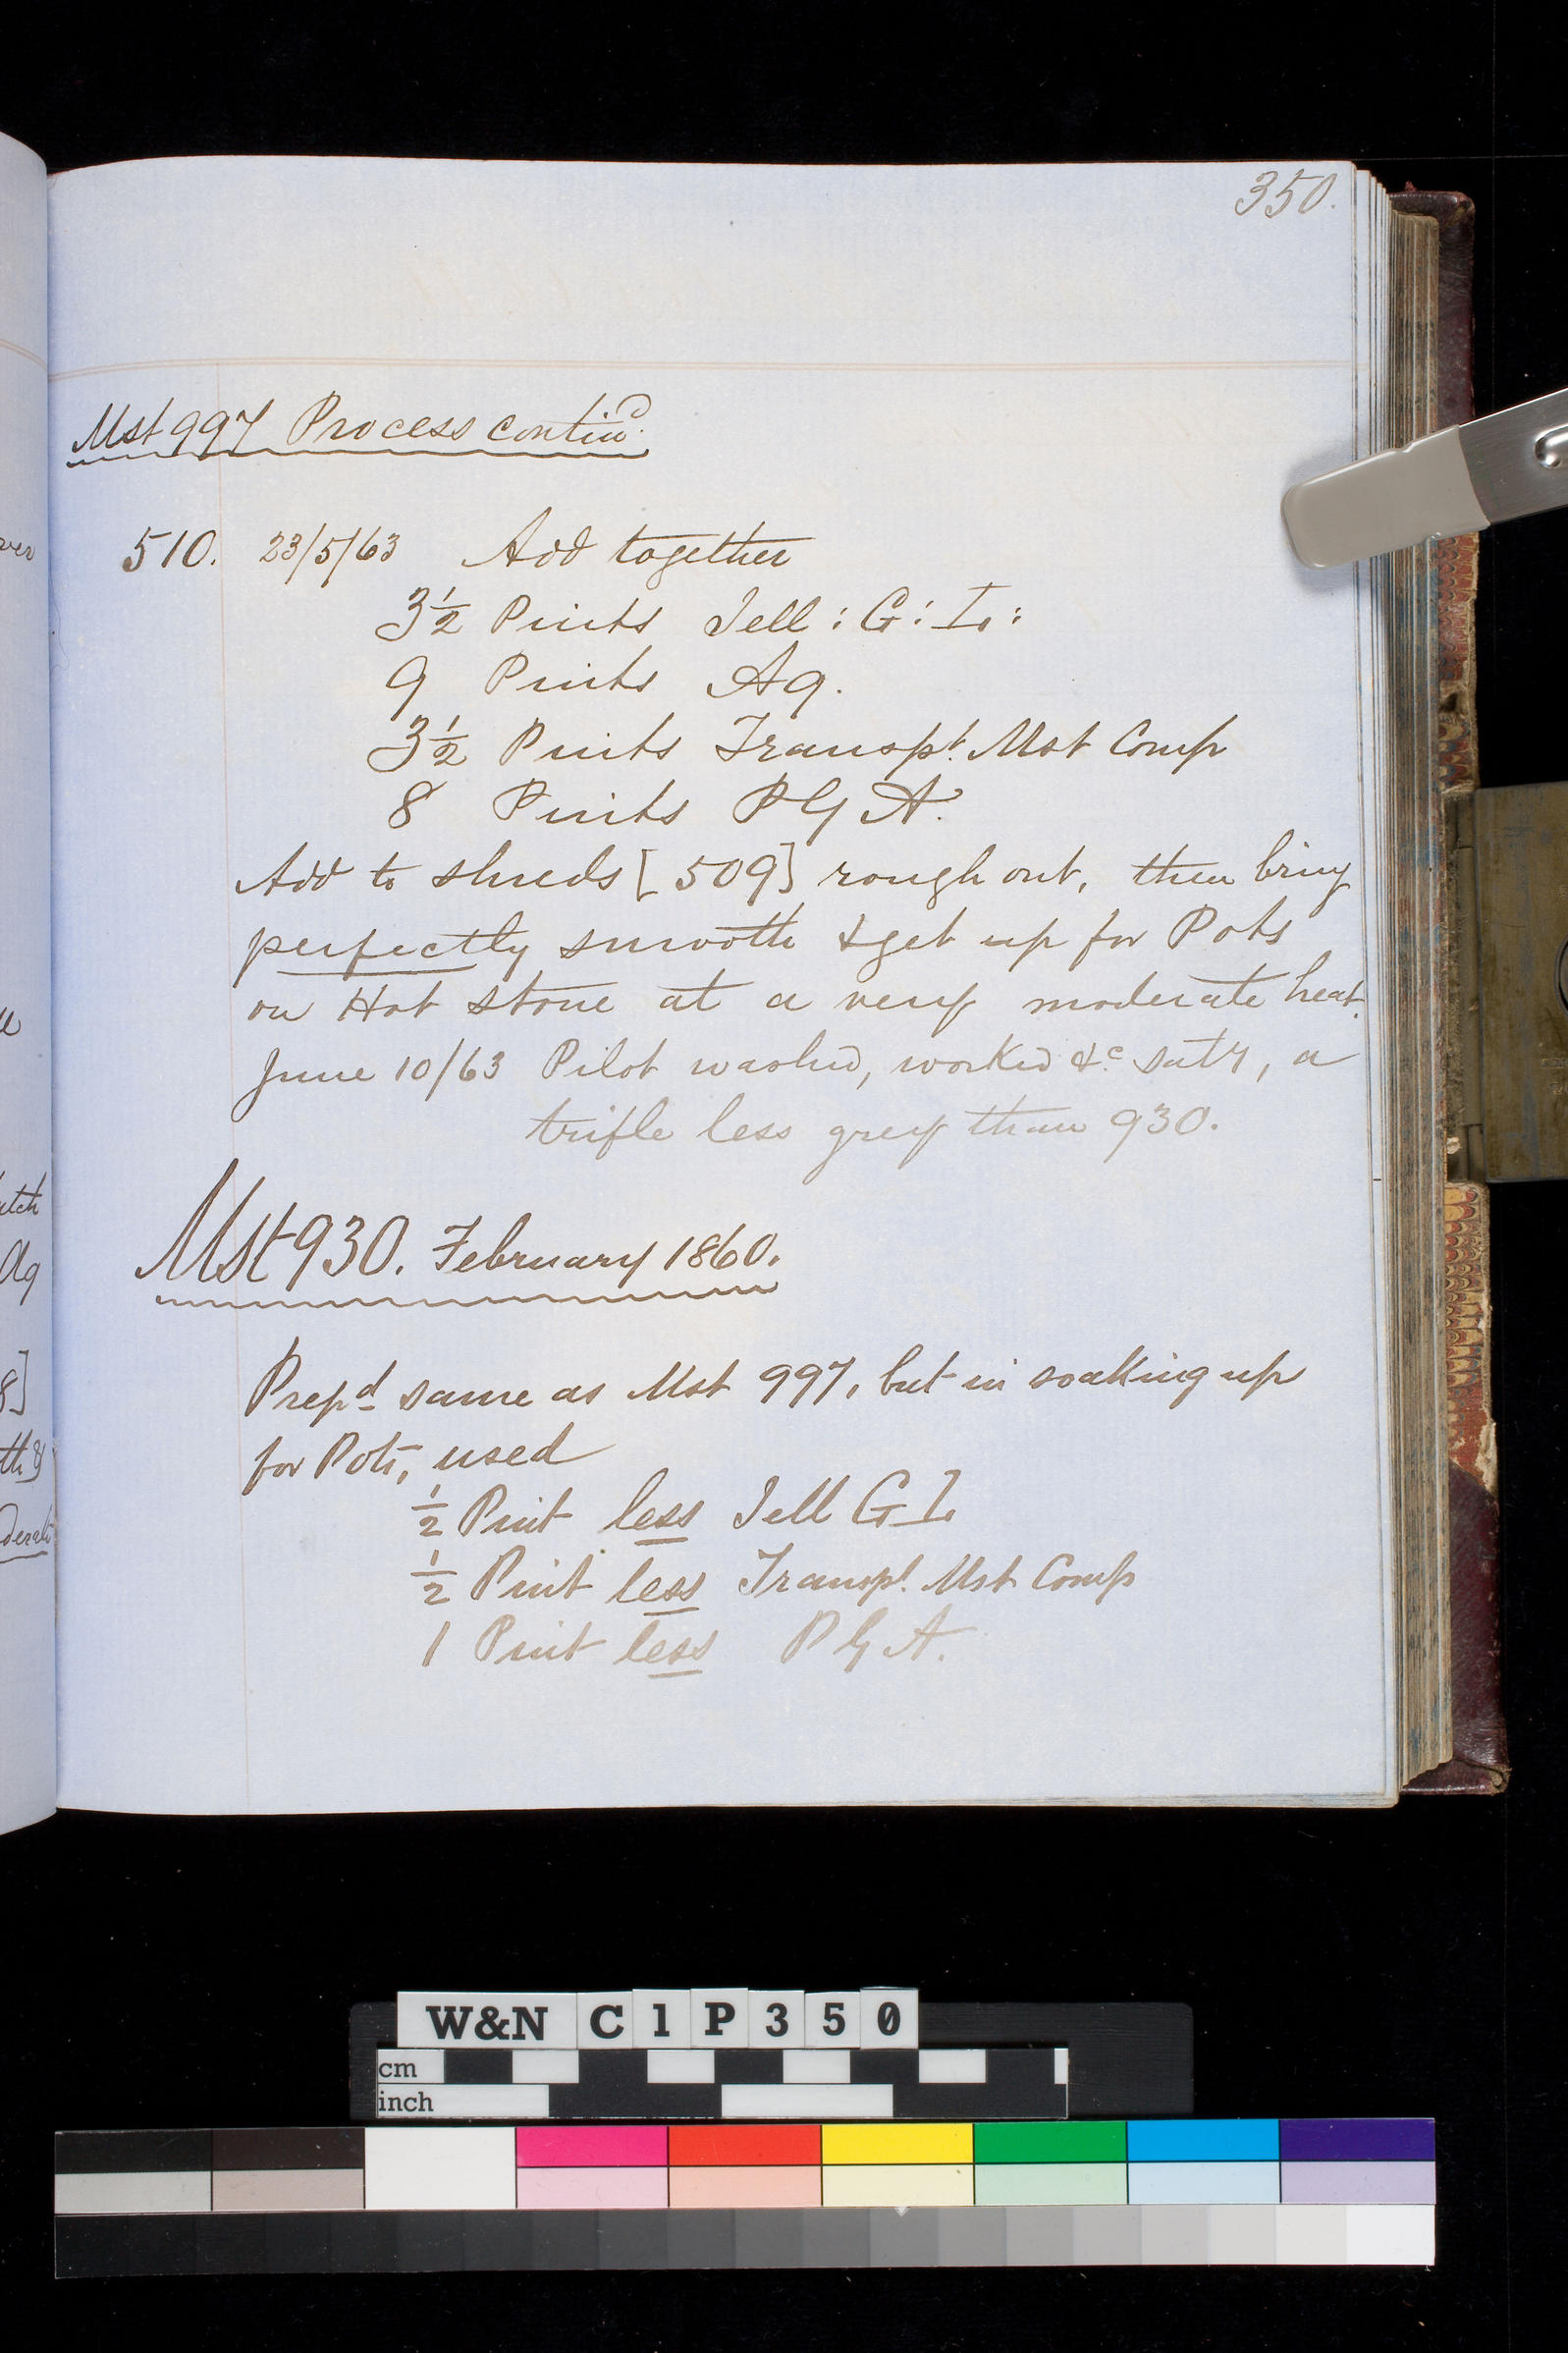 350.
Mst 997 Process contin^d.
510. 23/5/63 Add together
3 1/2 Pints Jell: G: I:
9 Pints Aq.
3 1/2 Pints Transp^t. Mst Comp
8 Pints P G A.
Add to shreds [509] rough out, then bring
perfectly smooth & get up for Pots
on Hot stone at a very moderate heat.
June 10/63 Pilot washed, worked &^c. saty, a
trifle less grey than 930.
Mst 930. February 1860.
Prep^d same as Mst 997, but in soaking up
for Pots, used
1/2 Pint less Jell G I
1/2 Pint less Transp^t. Mst Comp
1 Pint less P G A.
Aq
8]
W&N C1P350
cm
inch